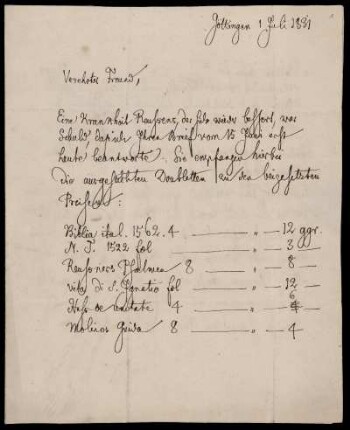 Göttingen 1 Juli 1831
Verehrter Freund,
Eine Krankheit Reussens, der sich wieder bessert, war
Schuld daß ich Ihren Brief vom 15 Juni erst
heute beantworte. Sie empfangen hierbei
die ausgewählten Doubletten zu den beigesetzten
Preisen:
Biblia ital. 1562. 4 — " — 12 ggr.
N. T. 1522 fol — " — 3
Reusners Psalmen 8 — " — 8
vita di S. Ignatio fol — " — 12
de 4 — " — 6
Molinos Guida 8 — " — 4